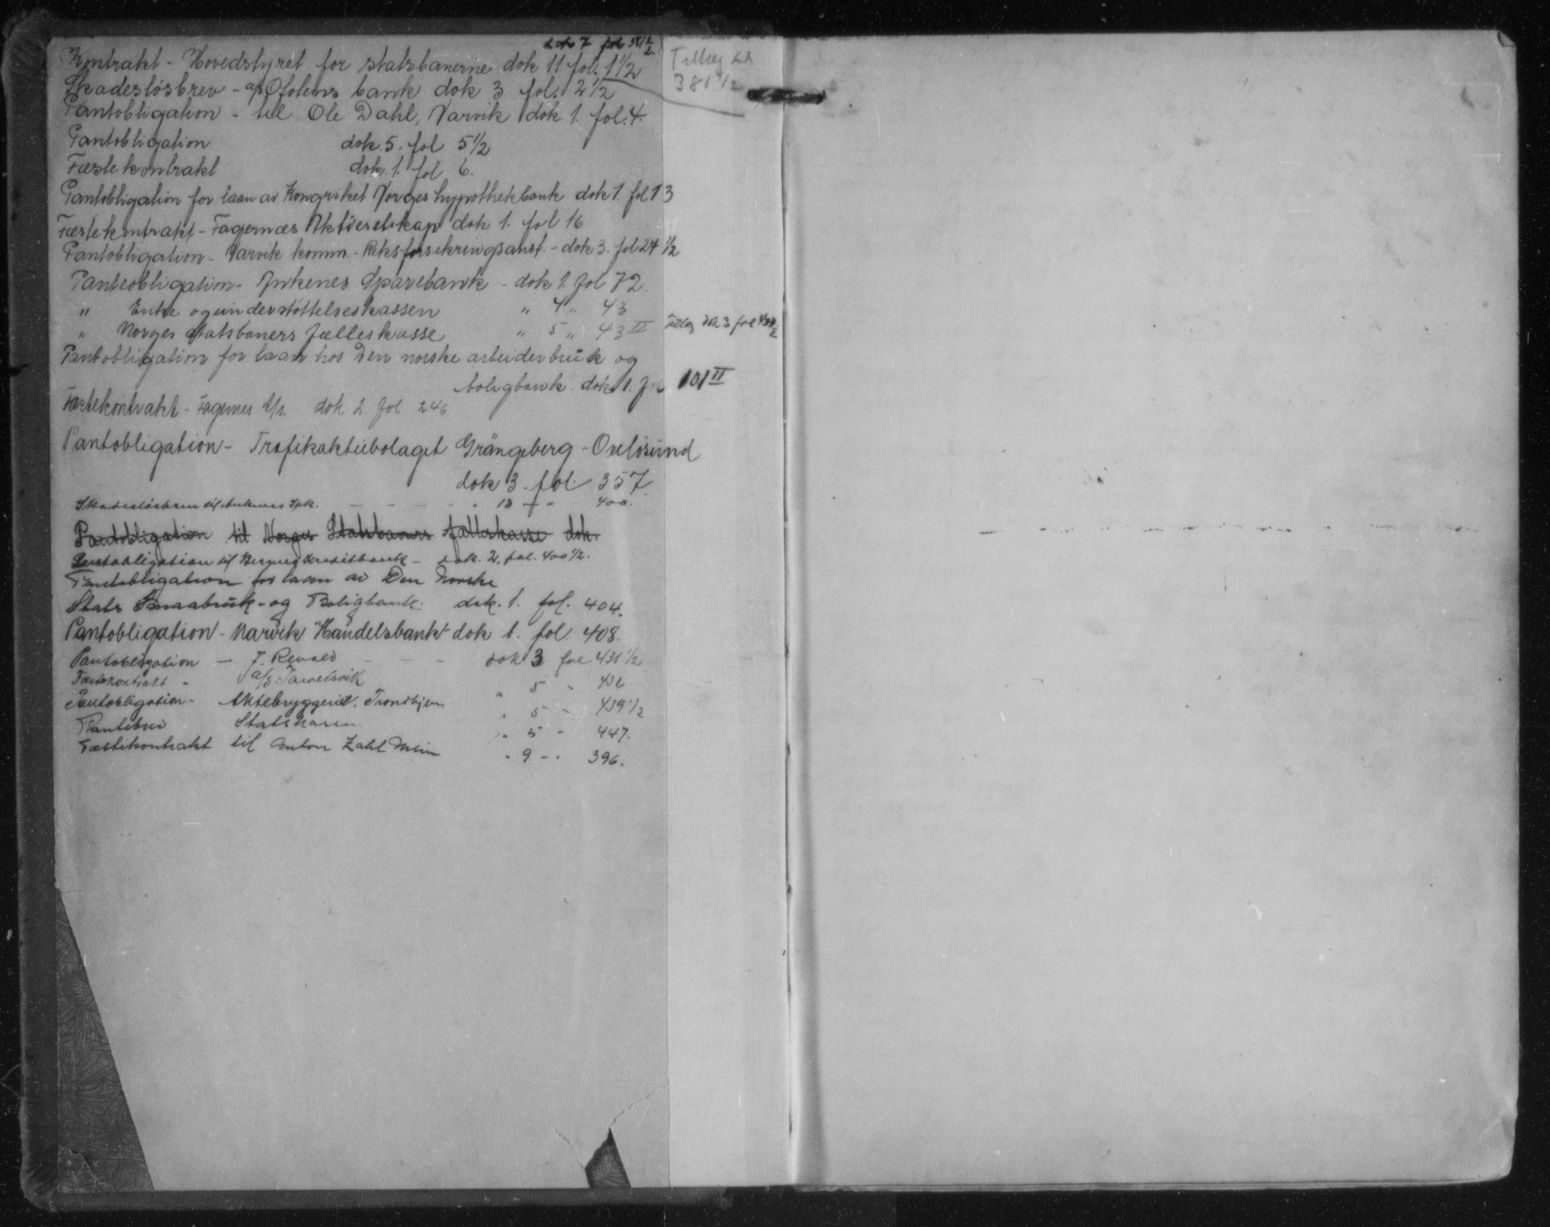 dok 7 fol 381 1/2.
Kontrakt - Hovedstyret for statsbanerne dok 11 fol. 1 1/2
Tillæg
381 1/2
Skadesløsbrev - a/s Ofotens bank dok 3 fol. 2 1/2
Pantobligation - til Ole Dahl, Narvik dok. 1. fol. 4.
Pantobligation dok. 5. fol 5 1/2
Fæstekontrakt dok. 1. fol 6.
Pantobligation for laan av Kongriket Norges hypothekbank dok 1. fol 13
Fæstekontrakt - Fagernæs Aktieselskap dok 1. fol 16
Pantobligation - Narvik komm. - Riksforsikringsanst. - dok 3. fol 24 1/2
Panteobligation - Ankenes Sparebank - dok 1. fol 72.
" Enke og understøttelseskassen " 4 " 43
" Norges Statsbaners fælleskasse " 5 " 43 II
Pantobligation for laan hos Den norske arbeiderbruk og
boligbank dok 1. fol 101 II
Fæstekontrakt - Fagernes A/s. dok 2 fol 246
Pantobligation - Trafikaktiebolaget Grängesberg - Oxelösund
dok 3. fol. 357.
Skadesløsbrev til Ankenes Spk. - - - " 13 - " 400.
Pantobligation til Norges Statsbaners fælleskasse dok.
Pantobligation til kreditbank - dok. 2, fol. 400 1/2.
Pantobligation for laan av Den Norske
Stats Smaabruk - og Boligbank. dok. 1. fol. 404.
Pantobligation - Narvik Handelsbank dok 1. fol 408.
Pantobligation - J. Revold - - - dok 3 fol 431 1/2
Fæstekontrakt - a/s " 5 "
Pantobligation - Aktiebryggeriet. Trondhjem " 5 - 439 1/2
Pantebrev Statskassen " 5 - 447.
Fæstekontrakt til Anton Zahl " 9 - . 396.